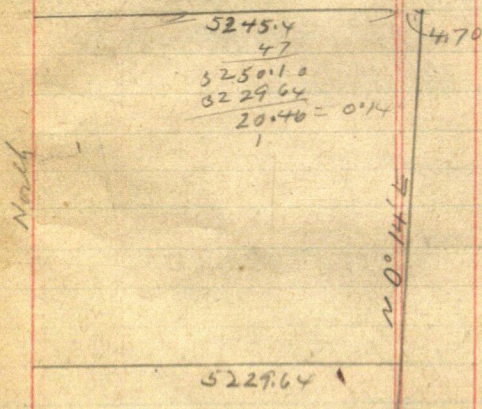 5245.4
4.70
47
5250.10
5229 64
20.46 = 0.14
1
North
N 0° 14' E
5229.64